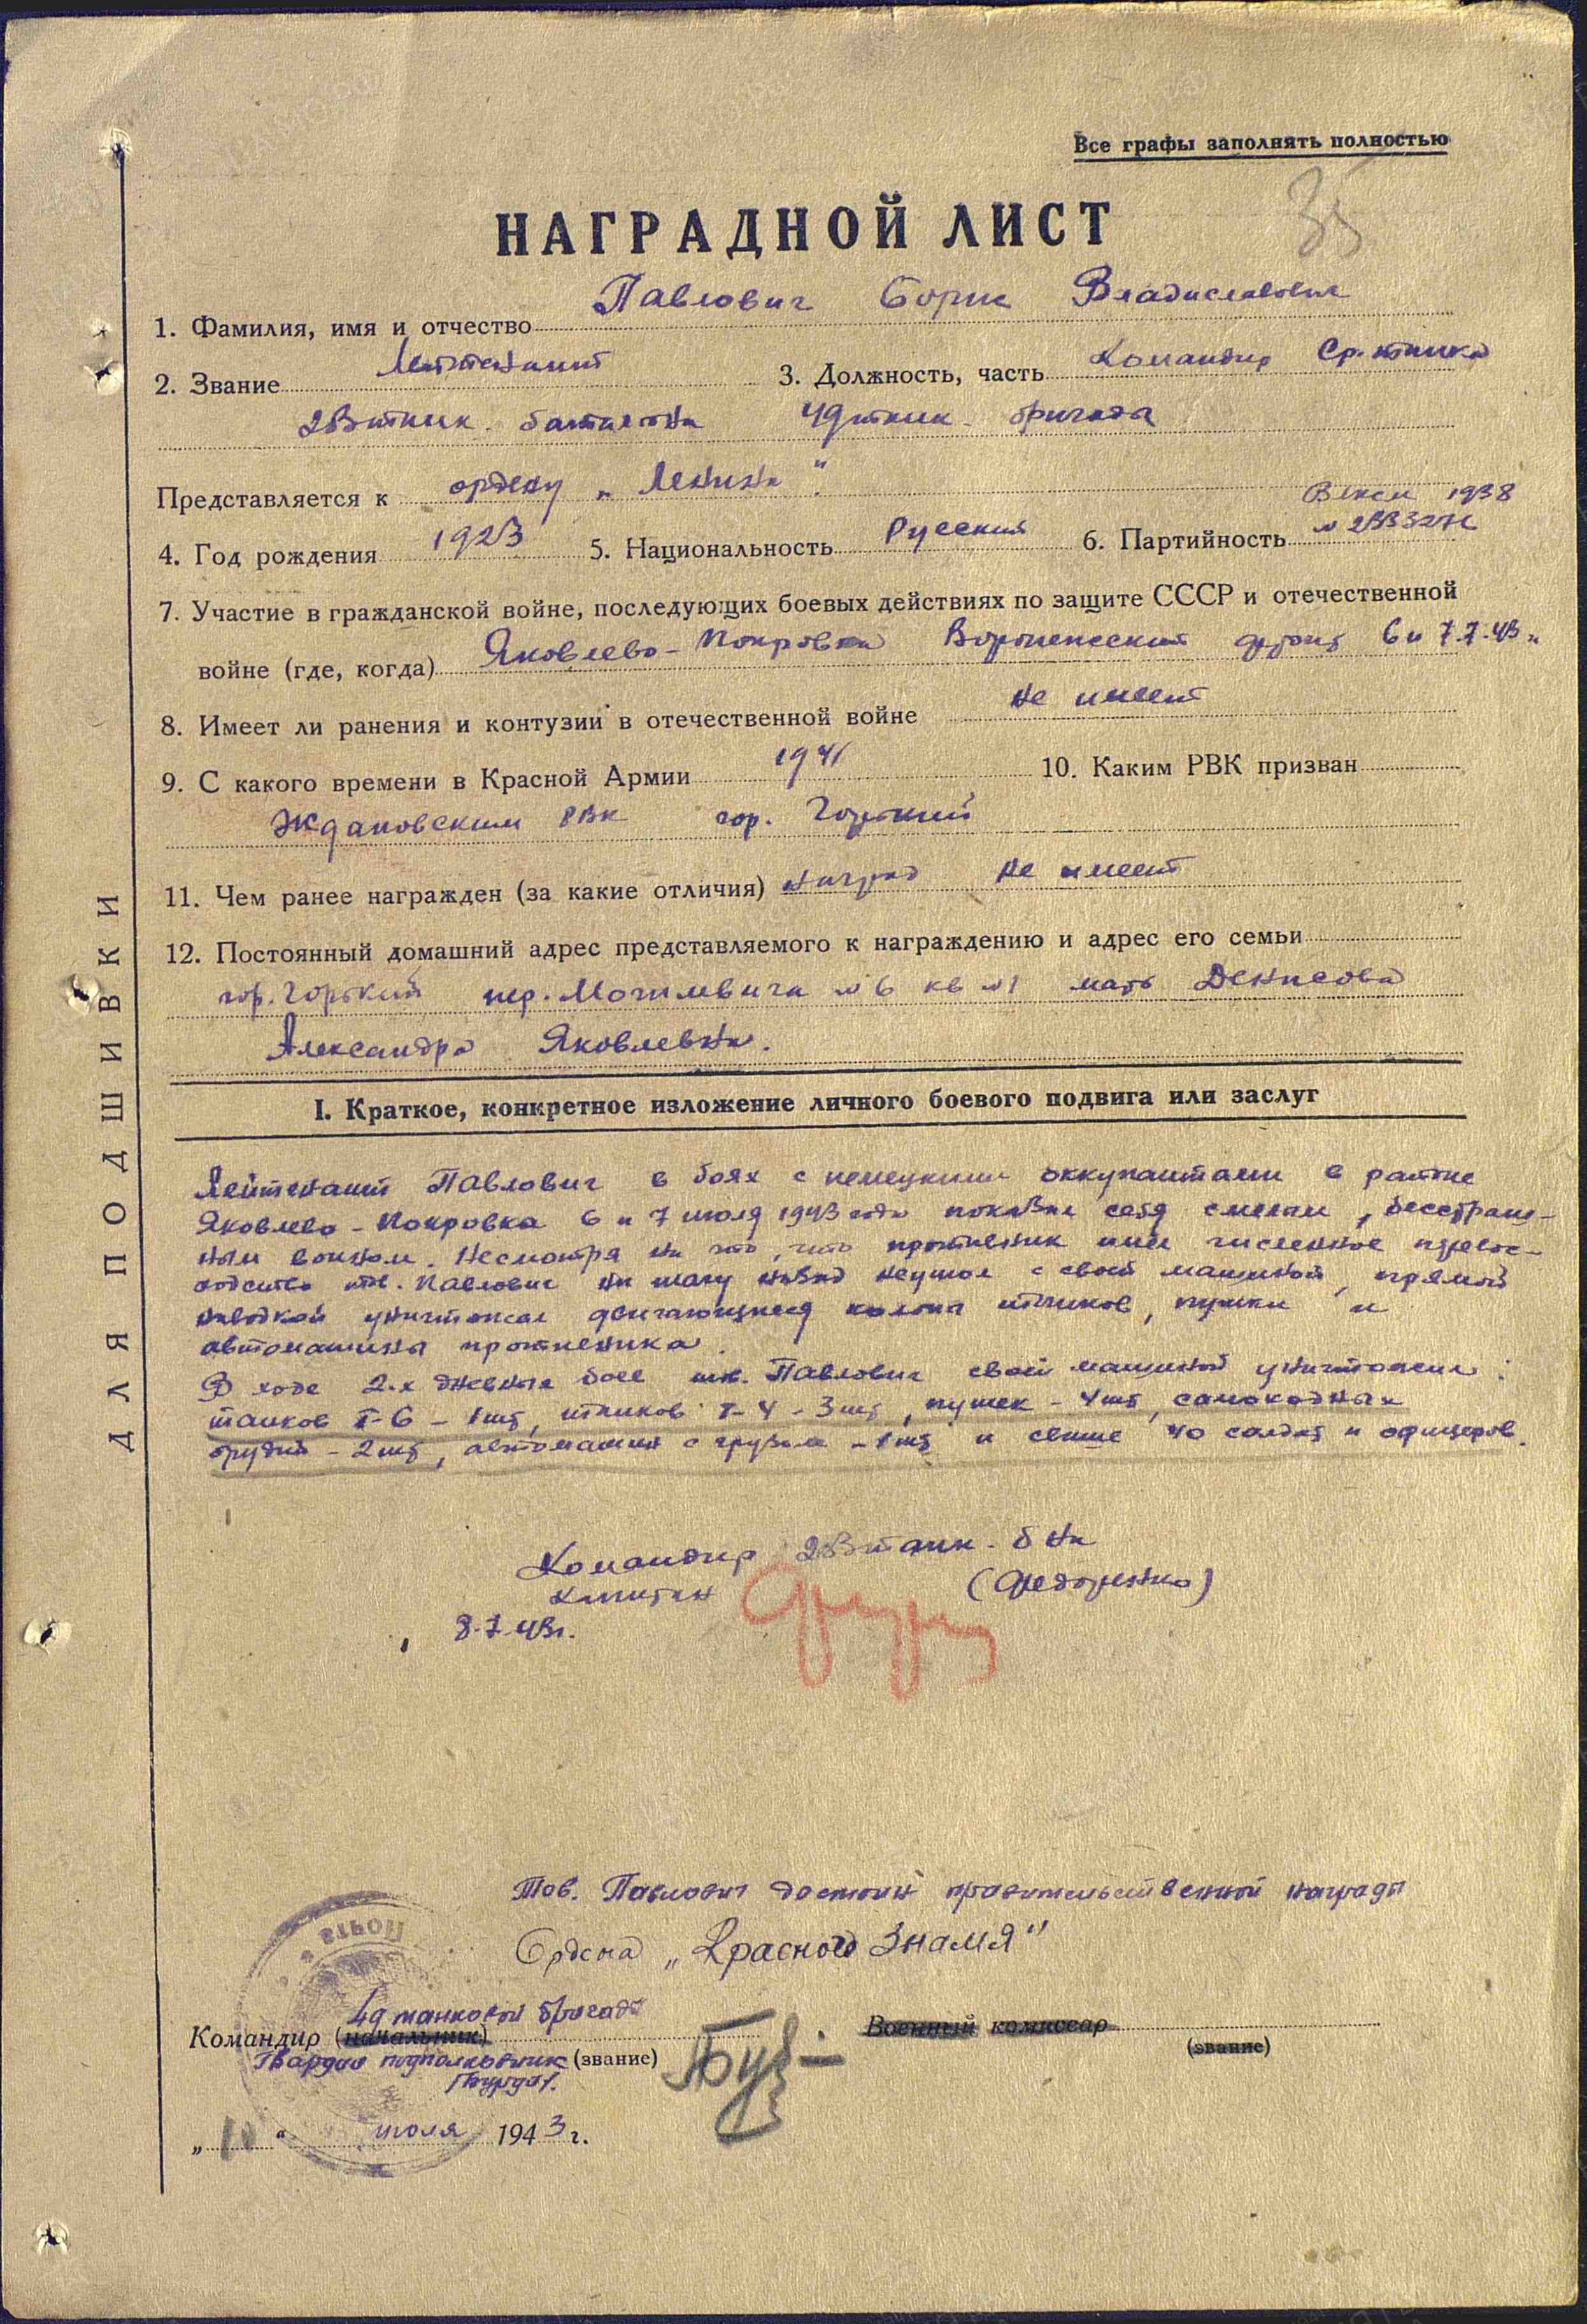 Все графы заполнять полностью
35
НАГРАДНОЙ ЛИСТ
1. Фамилия, имя и отчество Павлович Борис Владиславович
2. Звание Лейтенант 3. Должность, часть Командир Ср. танка
2В танк. батальона 49 танк. бригада
Представляется к ордену „Ленина“.
Влксм 1938
4. Год рождения 1923 5. Национальность Русский 6. Партийность
7. Участие в гражданской войне, последующих боевых действиях по защите СССР и отечественной
войне (где, когда) Яковлево - Покровка Воронежский фронт 6 и 7.7.43 г
8. Имеет ли ранения и контузии в отечественной войне не имеет
9. С какого времени в Красной Армии 1941 10. Каким РВК призван
Ждановским РВК гор. Горький
11. Чем ранее награжден (за какие отличия) наград не имеет
12. Постоянный домашний адрес представляемого к награждению и адрес его семьи
гор. Горький пер. Могилевича № 6 кв № 1 мать Денисова
Александра Яковлевна.
I. Краткое, конкретное изложение личного боевого подвига или заслуг
Лейтенант Павлович в боях с немецкими оккупантами в районе
Яковлево - Покровка 6 и 7 июля 1943 года показал себя смелым, бесстраш-
ным воином. Несмотря на то, что противник имел численное превос-
ходство тов. Павлович ни шагу назад неушол с своей машиной, прямой
наводкой уничтожал двигающиеся колоны танков, пушки и
автомашины противника.
В ходе 2-х дневных боев тов. Павлович своей машиной уничтожил:
танков Т-6 - 1 шт, танков Т-4 - 3 шт, пушек - 4 шт, самоходных
орудий - 2 шт, автомашин с грузом - 1 шт и свыше 40 солдат и офицеров.
Командир 2В танк. б на
капитан (Федоренко)
8.7.43г.
Тов. Павлович достоин правительственной награды
Ордена „Красного Знамя“
49 танковой бригады
Командир (начальник) Военный комиссар
Гвардии подполковник (звание) (звание)
„10“ июля 1943 г.
ДЛЯ ПОДШИВКИ